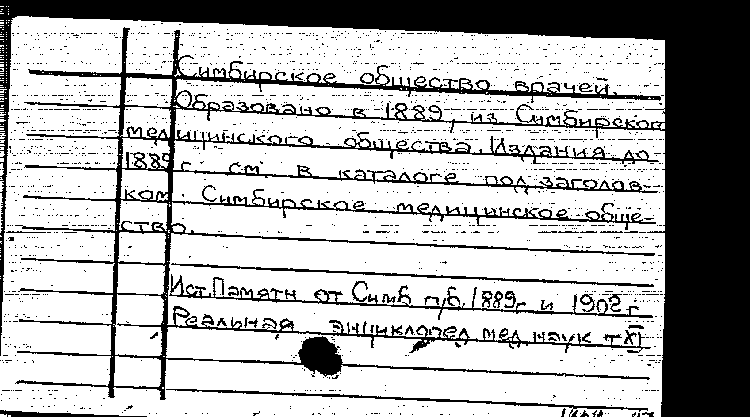 Симбирское общество врачей.
Образовано в 1889, из Симбирского
медицинского общества. Издания до
1889 г. см. в каталоге под заголов-
ком: Симбирское медицинское обще-
ство.
Ист. Памятн от Симб г/б. 1889г и 1902 г
Реальная энциклопед мед наук т XI